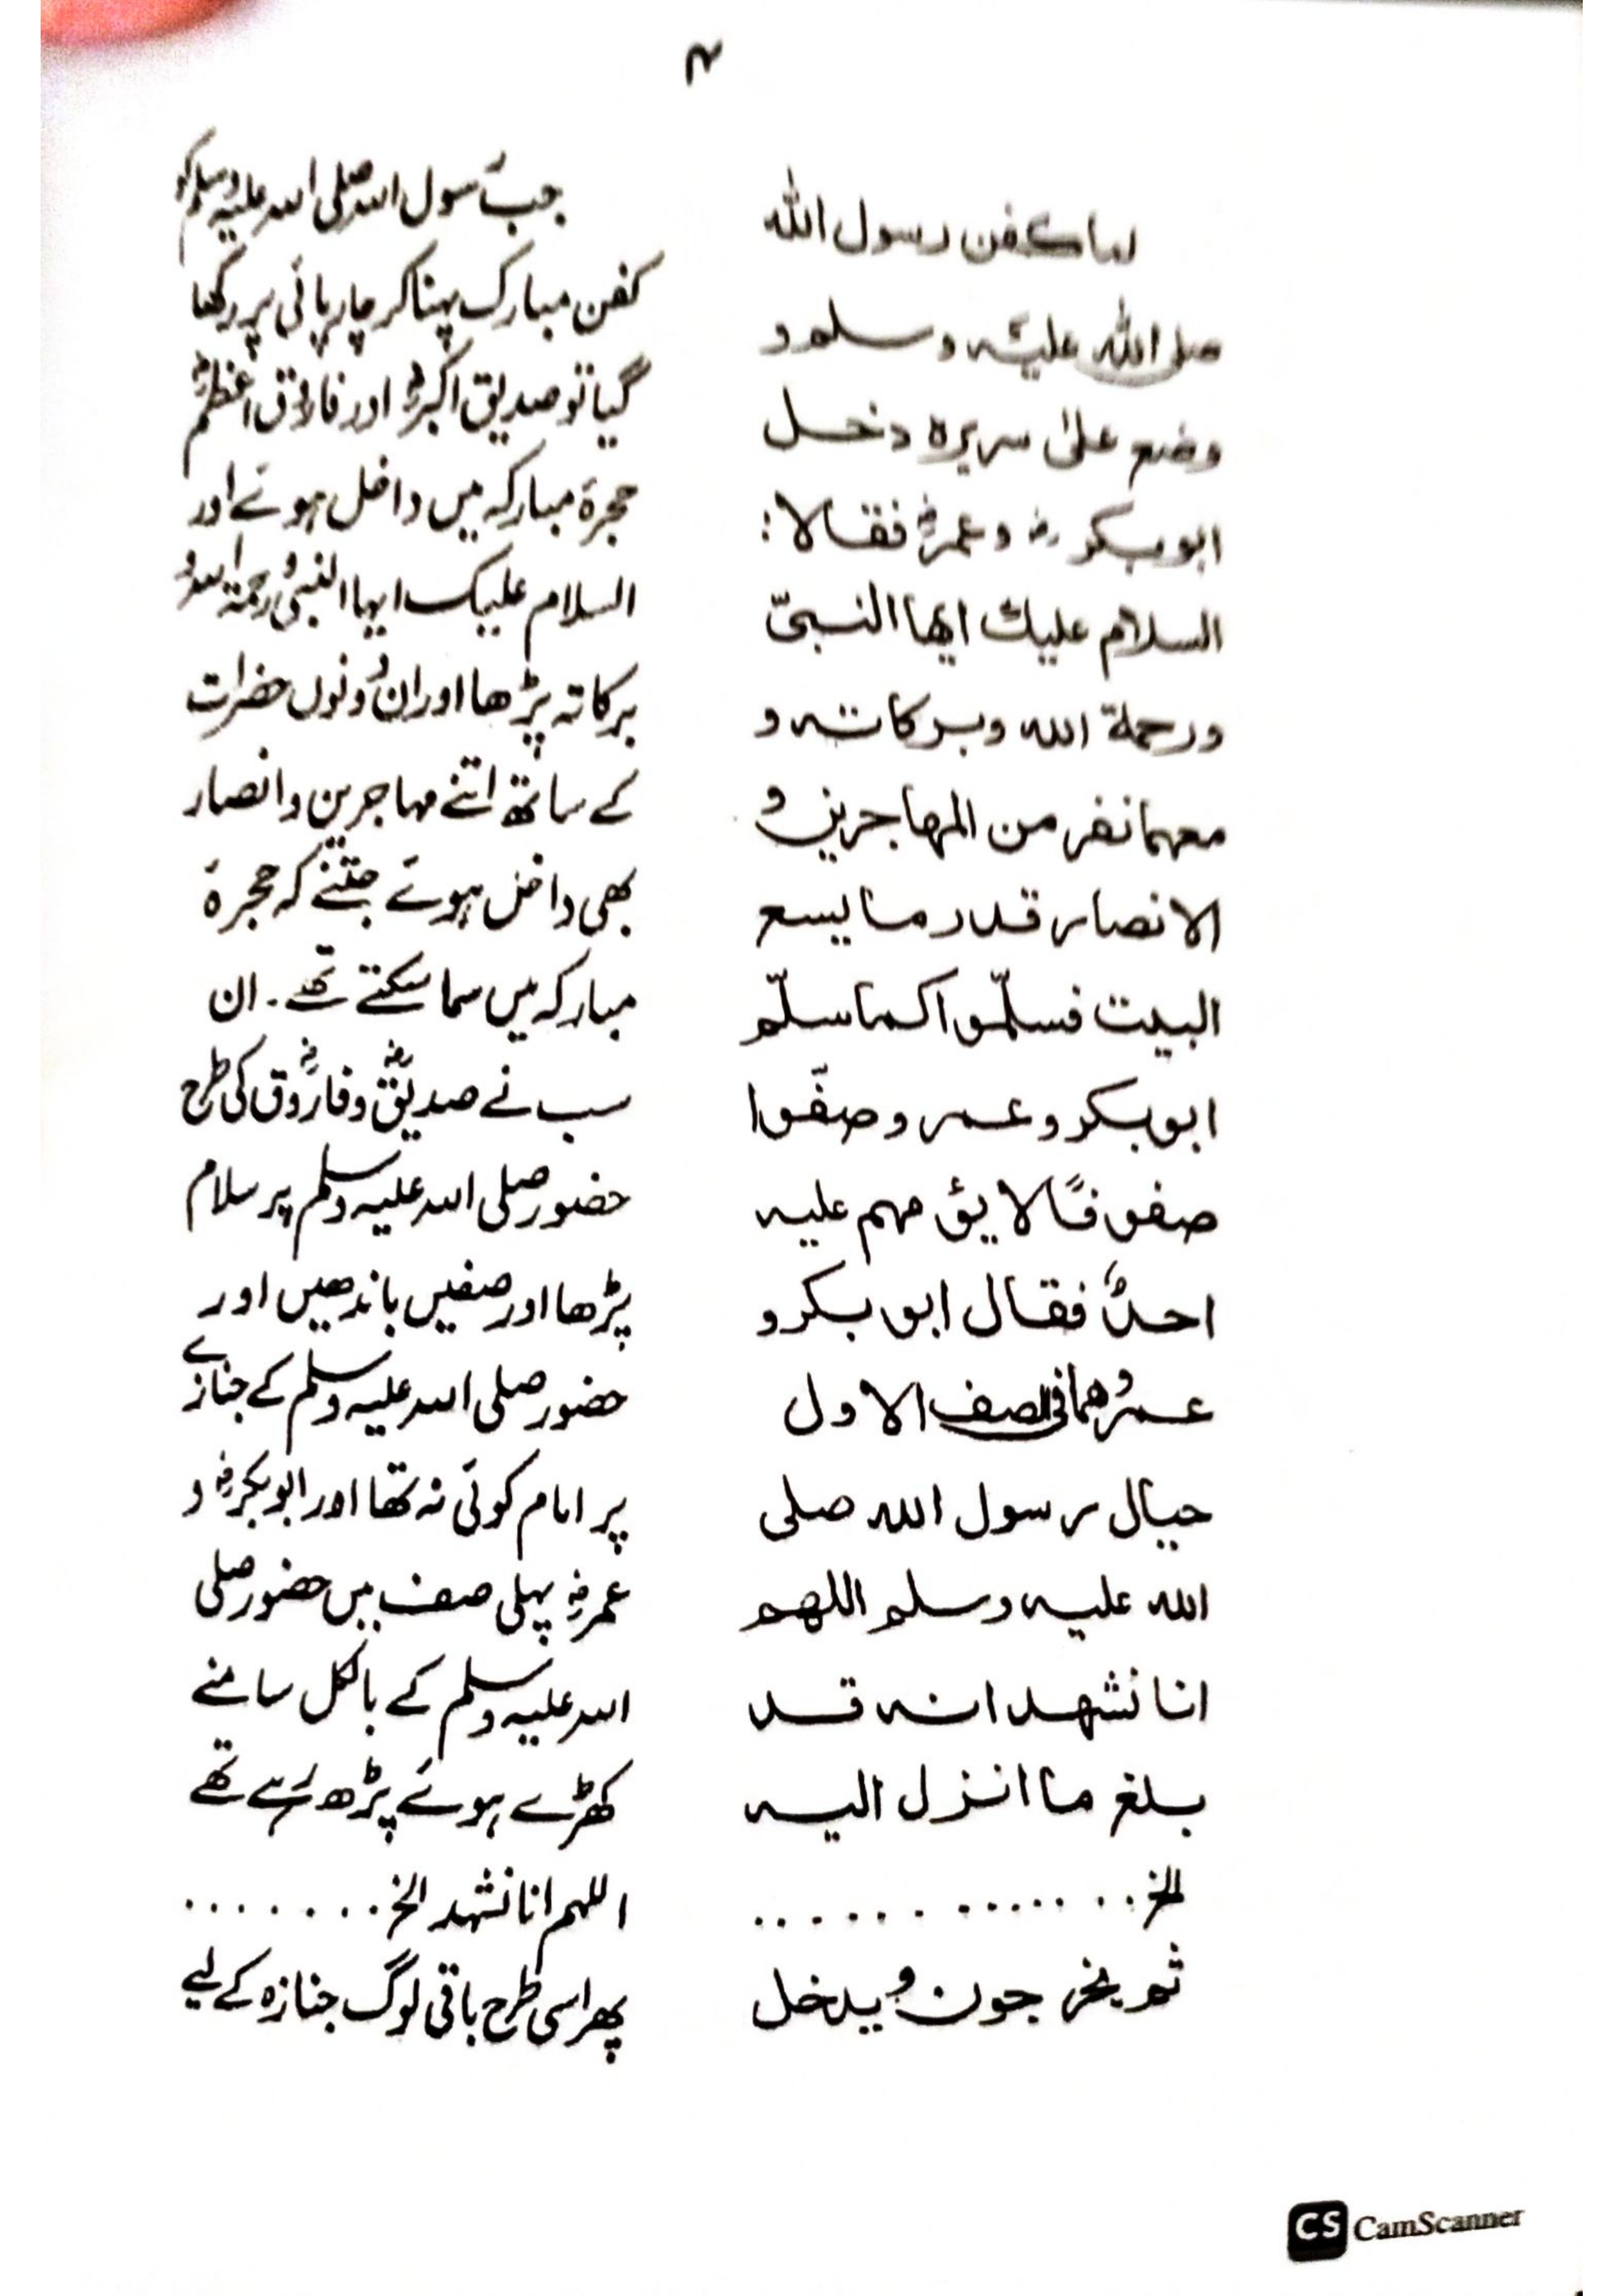 ۴
لما كفن رسول الله
صلى الله عليه وسلم و
وضع على سريره دخل
ابوبكر رض وعمر رض فقالا:
السلام عليك ايها النبىّ
ورحمة الله وبركاته و
معهما نفر من المهاجرين و
الانصار قدر ما يسع
البيت فسلّموا كما سلّم
ابوبكر وعمر وصفّوا
صفوفًا لا يؤمهم عليه
احدٌ فقال ابوبكر و
عمرُ وهما فى الصف الاول
حيال رسول الله صلى
الله عليه وسلم اللهم
انا نشهد انه قد
بلغ ما انزل اليه
الخ..............
ثم يخرجون و يدخل
جب رسول الله صلی الله علیه وسلم کو
کفن مبارک پہنا کر چارپائی پر رکھا
گیا تو صدیق اکبر رض اور فاروق اعظم رض
حجرۂ مبارکہ میں داخل ہوئے اور
السلام علیک ایہا النبی و رحمۃ اللہ و
برکاتہ پڑھا اور ان دونوں حضرات
کے ساتھ اتنے مہاجرین و انصار
بھی داخل ہوئے جتنے کہ حجرۂ
مبارکہ میں سما سکتے تھے۔ ان
سب نے صدیق رض و فاروق رض کی طرح
حضور صلی اللہ علیہ وسلم پر سلام
پڑھا اور صفیں باندھیں اور
حضور صلی اللہ علیہ وسلم کے جنازے
پر امام کوئی نہ تھا اور ابوبکر رض و
عمر رض پہلی صف میں حضور صلی
اللہ علیہ وسلم کے بالکل سامنے
کھڑے ہوئے پڑھ رہے تھے
اللہم انا نشہد الخ.......
پھر اسی طرح باقی لوگ جنازہ کے لیے
CS CamScanner